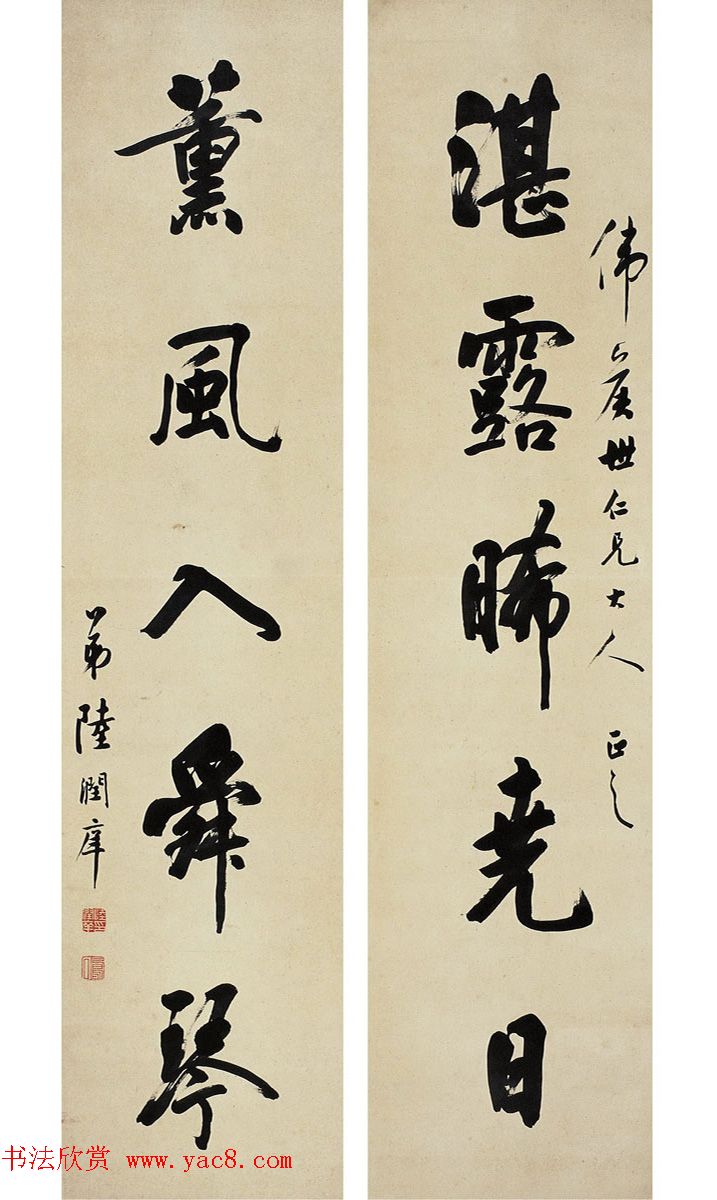 湛露晞堯日
伟 世仁兄大人 正之
薰風入舜琴
弟陸潤庠
书法欣赏 www.yac8.com